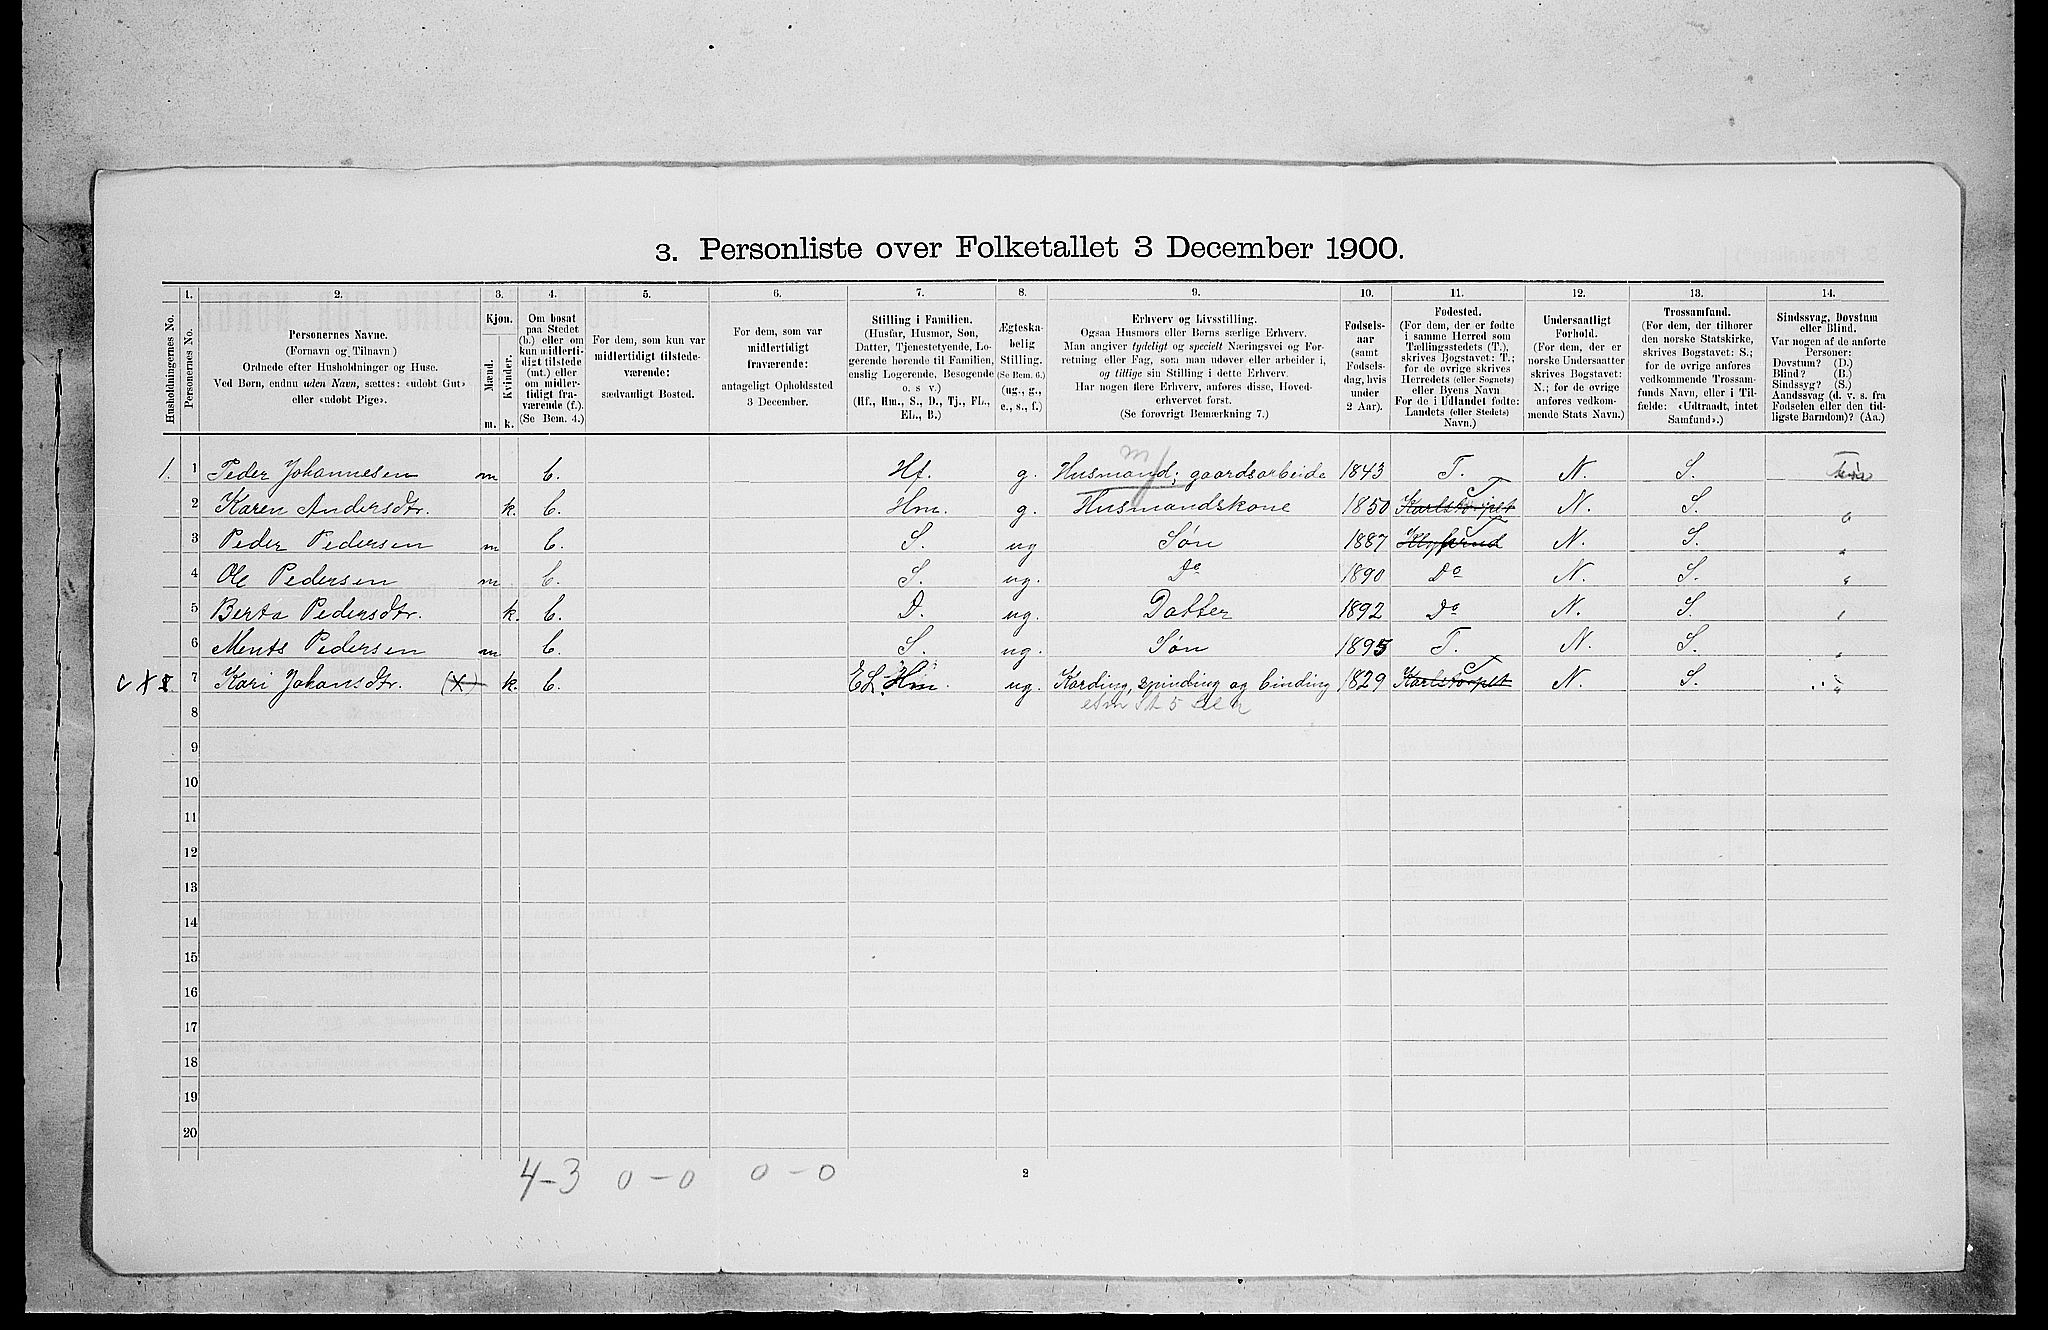 3. Personliste over Folketallet 3 December 1900.
1. 2. 3. 4. 5. 6. 7. 8. 9. 10. 11. 12. 13. 14.
Husholdningernes No.
Personernes No.
Personernes Navne.
(Fornavn og Tilnavn)
Ordnede efter Husholdninger og Huse.
Ved Børn, endnu uden Navn, sættes: «udøbt Gut»
eller «udøbt Pige».
Kjøn.
Mænd.
Kvinder.
m. k.
Om bosat
paa Stedet
(b.) eller om
kun midlerti-
digt tilstede
(mt.) eller
om midler-
tidigt fra-
værende (f.).
(Se Bem. 4.)
For dem, som kun var
midlertidigt tilstede-
værende:
sædvanligt Bosted.
For dem, som var
midlertidigt
fraværende:
antageligt Opholdssted
3 December.
Stilling i Familien.
(Husfar, Husmor, Søn,
Datter, Tjenestetyende, Lo-
gerende hørende til Familien,
enslig Logerende, Besøgende
o. s v.)
(Hf., Hm., S., D., Tj., FL.,
EL., B.)
Ægteska-
belig
Stilling.
(Se Bem. 6.)
(ug., g.,
e., s., f.)
Erhverv og Livsstilling.
Ogsaa Husmors eller Børns særlige Erhverv.
Man angiver tydeligt og specielt Næringsvei og For-
retning eller Fag, som man udøver eller arbeider i,
og tillige sin Stilling i dette Erhverv.
Har nogen flere Erhverv, anføres disse, Hoved-
erhvervet først.
(Se forøvrigt Bemærkning 7.)
Fødsels-
aar
(samt
Fødsels-
dag, hvis
under
2 Aar).
Fødested.
(For dem, der er fødte
i samme Herred som
Tællingsstedets (T.),
skrives Bogstavet: T.;
for de øvrige skrives
Herredets (eller Sognets)
eller Byens Navn
For de i Udlandet fødte:
Landets (eller Stedets)
Navn.)
Undersaatligt
Forhold.
(For dem, der er
norske Undersaatter
skrives Bogstavet:
N.; for de øvrige
anføres vedkom-
mende Stats Navn.)
Trossamfund.
(For dem, der tilhører
den norske Statskirke,
skrives Bogstavet: S.;
for de øvrige anføres
vedkommende Trossam-
funds Navn, eller i Til-
fælde: «Udtraadt, intet
Samfund».)
Sindssvag, Døvstum
eller Blind.
Var nogen af de anførte
Personer:
Døvstum? (D.)
Blind? (B.)
Sindssyg? (S.)
Aandssvag (d. v. s. fra
Fødselen eller den tid-
ligste Barndom)? (Aa.)
1. 1 Peder Johannesen m b. Hf. g. Husmand; gaardsarbeide 1843 T. N. S.
2 Karen Andersdtr. k. b. Hm. g. Husmandskone 1850 T N. S. "
3 Peder Pedersen m b. S. ug Søn 1887 T N. S. "
4 Ole Pedersen m b. S. ug. Do 1890 Do N. S. "
5 Berta Pedersdtr. k. b. D. ug. Datter 1892 Do N. S. "
6 Ments Pedersen m b. S. ug. Søn 1895 T. N. S. "
7 Kari Johansdtr. (X) k. b. EL. Hm. ug. Karding, spinding og binding 1829 T N. S. "
8
9
10
11
12
13
14
15
16
17
18
19
20
4-3 0-0 0-0
2